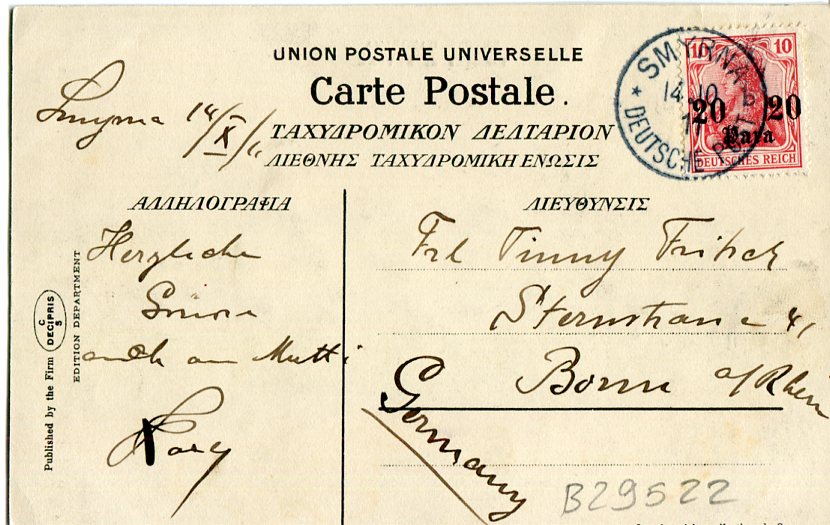 UNION POSTALE UNIVERSELLE
Carte Postale.
ΤΑΧΥΔΡΟΜΙΚΟΝ ΔΕΛΤΑΡΙΟΝ
ΔΙΕΘΝΗΣ ΤΑΧΥΔΡΟΜΙΚΗ ΕΝΩΣΙΣ
SMYRNA
14.10
b
DEUTSCHE POST
10 10
20 20
Para
DEUTSCHES REICH
Smyrna 14/X/11
ΑΛΛΗΛΟΓΡΑΦΙΑ
Herzliche
Grüsse
auch an Mutti
ΔΙΕΥΘΥΝΣΙΣ
Frl Tinny Fritsch
Sternstrasse 41
Bonn a/Rhein
Germany
B29522
Published by the Firm C DECIPRIS S
EDITION DEPARTMENT